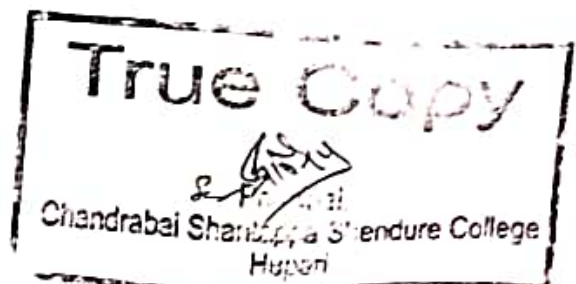 True Copy
Chandrabai Shendure College
Hupari